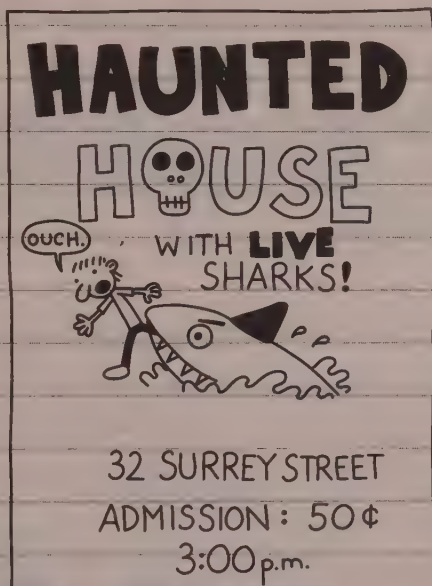 HAUNTED
HOUSE
OUCH.
WITH LIVE
SHARKS!
32 SURREY STREET
ADMISSION: 50¢
3:00 p.m.